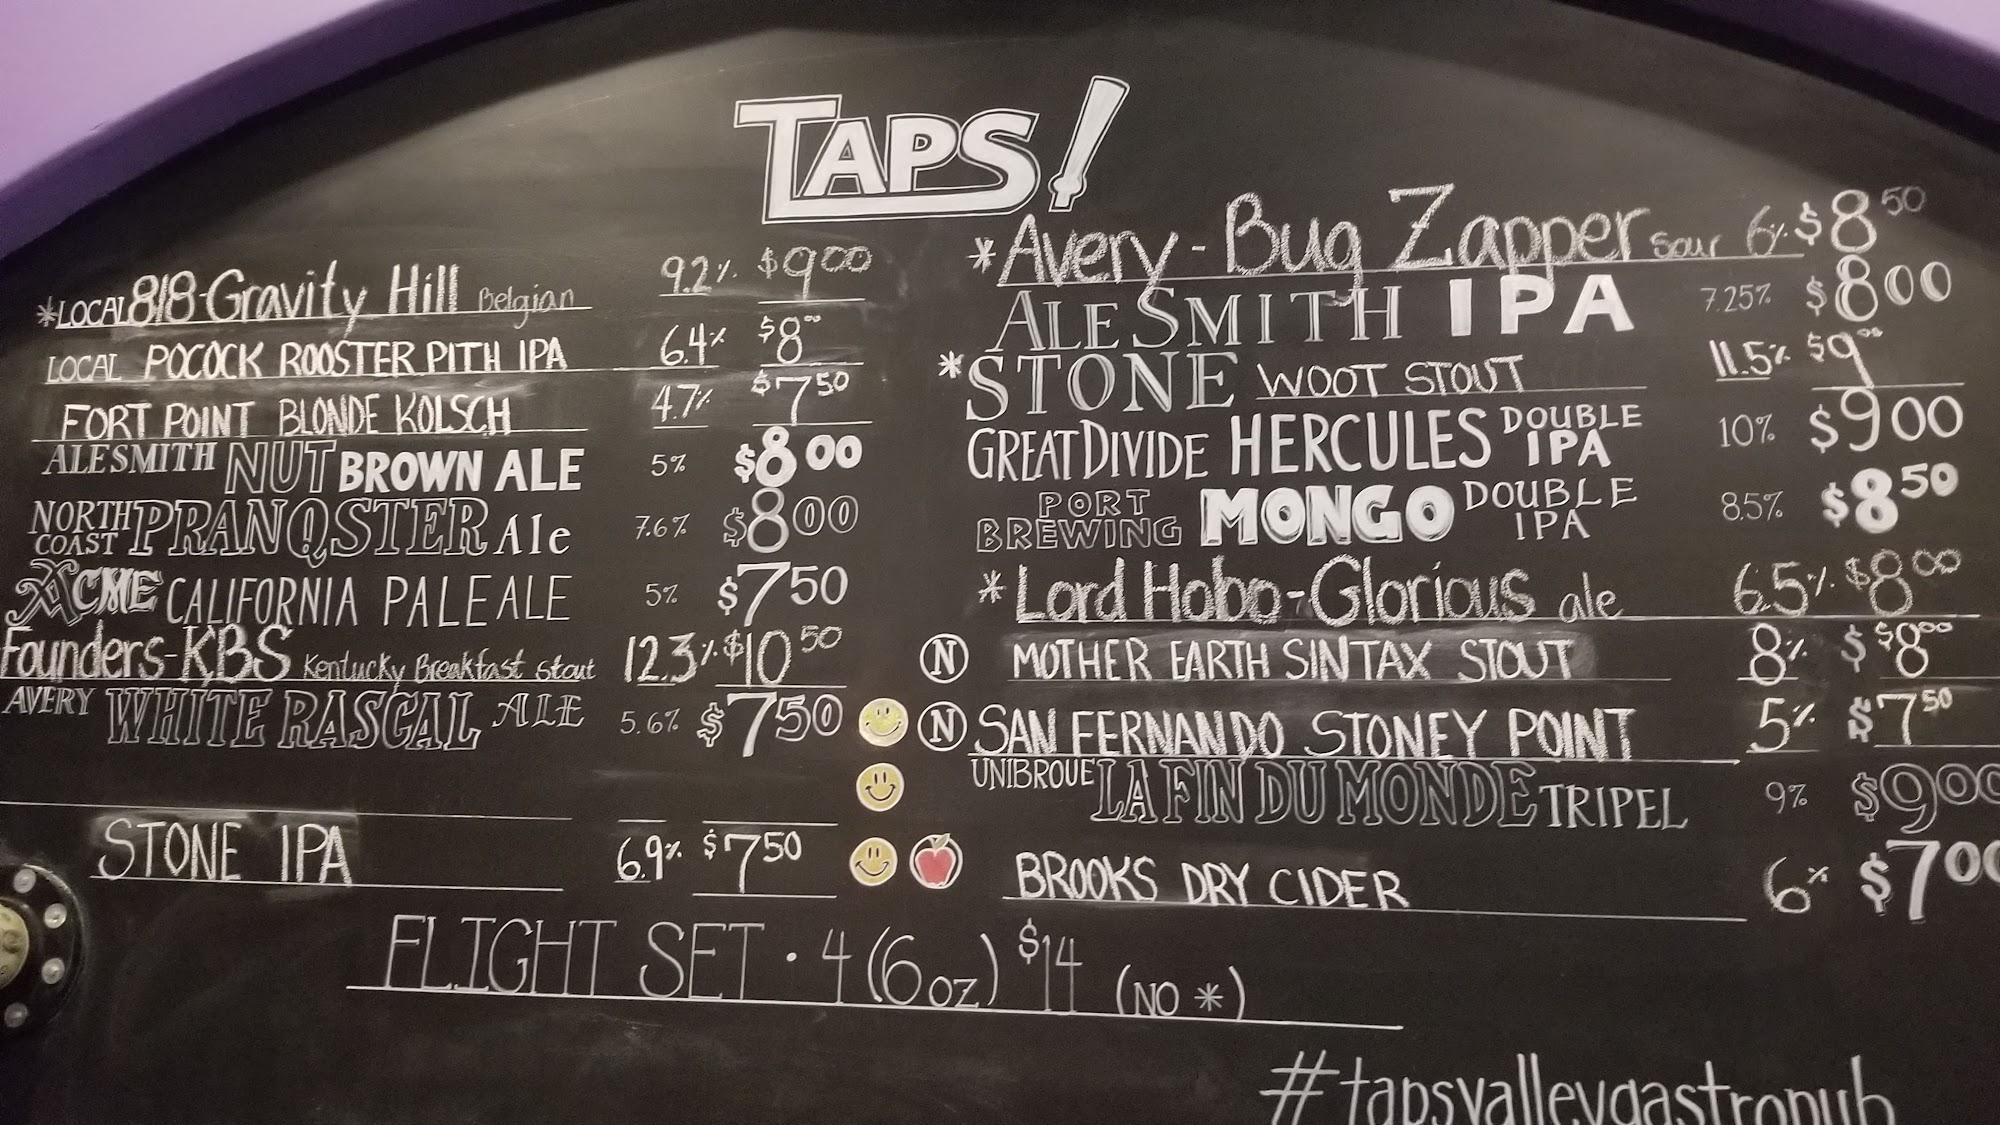 TAPS!
*LOCAL 818-Gravity Hill Belgian 9.2% $9.00
LOCAL POCOCK ROOSTER PITH IPA 6.4% $8.00
FORT POINT BLONDE KOLSCH 4.7% $7.50
ALESMITH NUT BROWN ALE 5% $8.00
NORTH COAST PRANQSTER Ale 7.6% $8.00
ACME CALIFORNIA PALE ALE 5% $7.50
Founders-KBS Kentucky Breakfast Stout 12.3% $10.50
AVERY WHITE RASCAL ALE 5.6% $7.50
STONE IPA 6.9% $7.50
*Avery-Bug Zapper Sour 6% $8.50
ALESMITH IPA 7.25% $8.00
*STONE WOOT STOUT 11.5% $9.00
GREAT DIVIDE HERCULES DOUBLE IPA 10% $9.00
PORT BREWING MONGO DOUBLE IPA 8.5% $8.50
*Lord Hobo-Glorious ale 6.5% $8.00
N MOTHER EARTH SINTAX STOUT 8% $ $8.00
N SAN FERNANDO STONEY POINT 5% $7.50
UNIBROUE LA FIN DU MONDE TRIPEL 9% $9.00
BROOKS DRY CIDER 6% $7.00
FLIGHT SET · 4 (6oz) $14 (NO *)
#tapsvalleygastropub